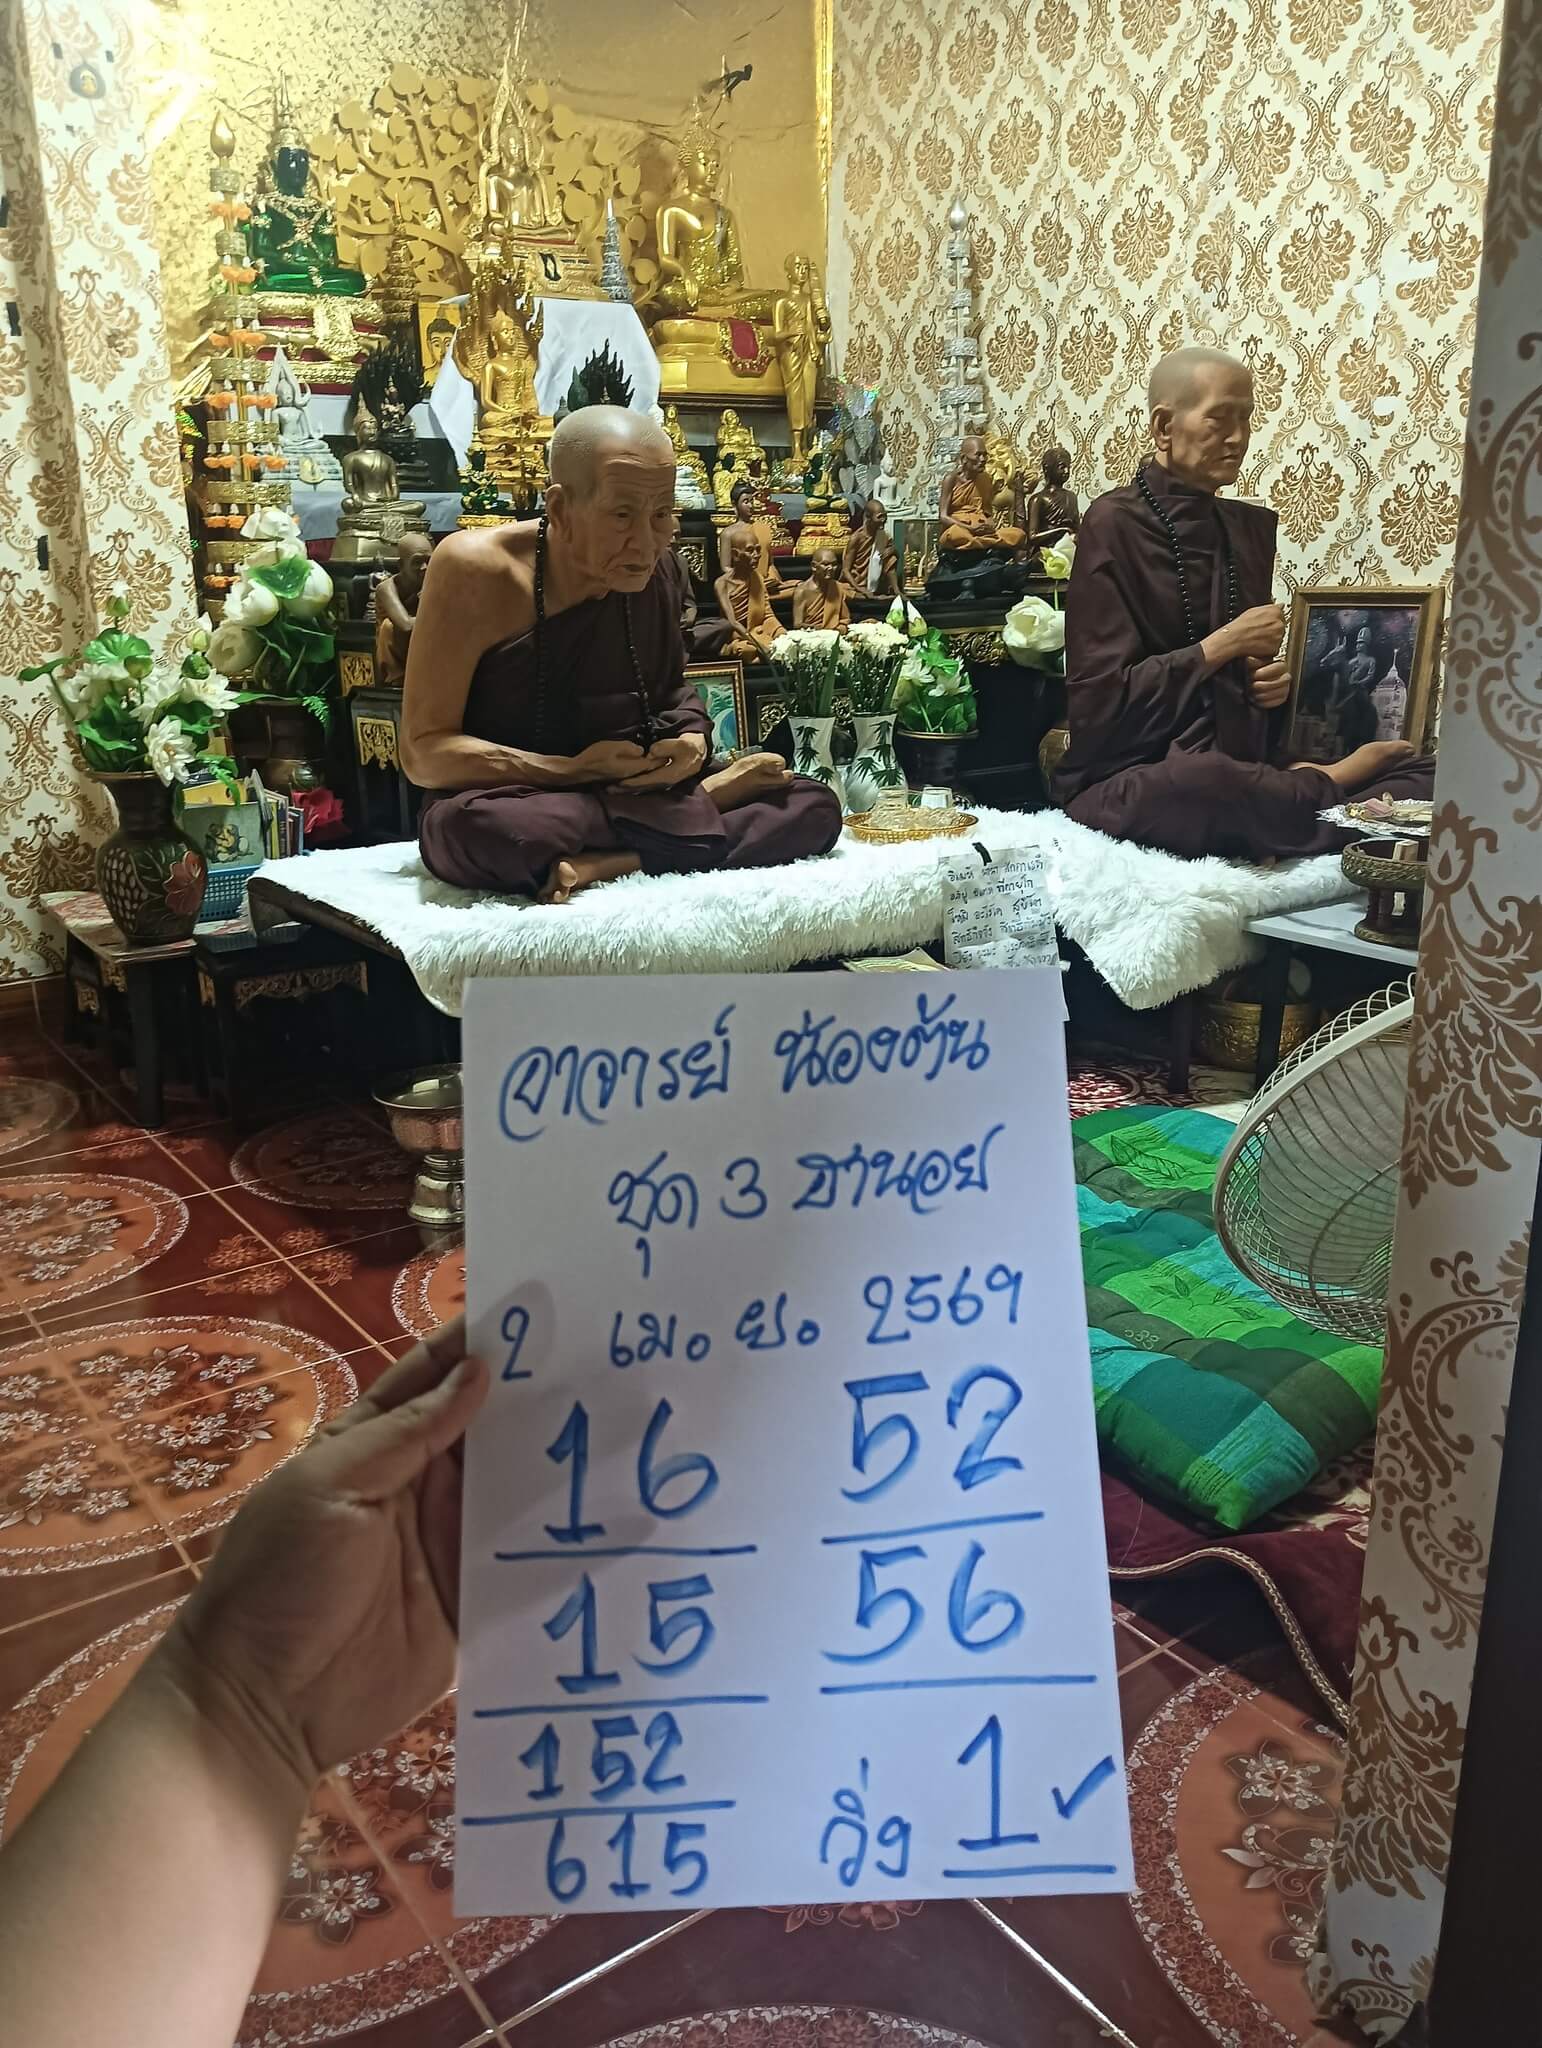 อาจารย์ น่องต้น
ชุด 3 ฮานอย
2 เม.ย. 2569
16 52
15 56
152
615
วิ่ง 1 ✓